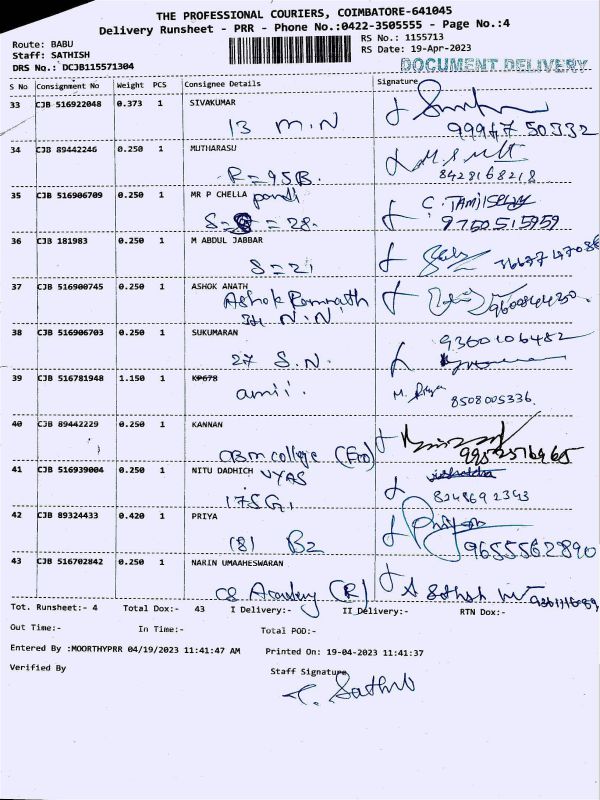 THE PROFESSIONAL COURIERS, COIMBATORE-641045
Delivery Runsheet - PRR - Phone No.:0422-3505555 - Page No.:4
Route: BABU
RS No.: 1155713
Staff: SATHISH
RS Date: 19-Apr-2023
DRS No.: DCJB115571304
DOCUMENT DELIVERY
S No Consignment No Weight PCS Consignee Details Signature
33 CJB 516922048 0.373 1 SIVAKUMAR
13 MIN
99947 50332
34 CJB 89442246 0.250 1 MUTHARASU
R = 95B.
8428168218
35 CJB 516906709 0.250 1 MR P CHELLA pandi
S = 28.
9750515959
36 CJB 181983 0.250 1 M ABDUL JABBAR
S = 21
37 CJB 516900745 0.250 1 ASHOK ANATH
Ashok Ramnath
9600844430
38 CJB 516906703 0.250 1 SUKUMARAN
9360106482
27 S.N.
39 CJB 516781948 1.150 1 KP678
amii.
M. Priya
8508005336.
40 CJB 89442229 0.250 1 KANNAN
CBM college
9952576965
41 CJB 516939004 0.250 1 NITU DADHICH VYAS
17SG1
8248692343
42 CJB 89324433 0.420 1 PRIYA
181 B2
Priya
9655562890
43 CJB 516702842 0.250 1 NARIN UMAAHESWARAN
CS Academy (R)
Tot. Runsheet:- 4 Total Dox:- 43 I Delivery:- II Delivery:- RTN Dox:-
Out Time:- In Time:- Total POD:-
Entered By :MOORTHYPRR 04/19/2023 11:41:47 AM Printed On: 19-04-2023 11:41:37
Verified By Staff Signature